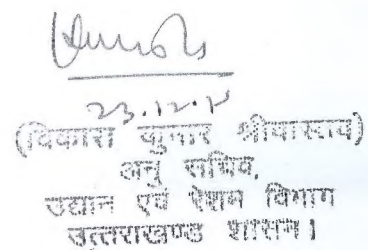 23.12.1
(विकास कुमार श्रीवास्तव)
अनु सचिव,
उद्यान एवं रेशम विभाग
उत्तराखण्ड शासन।